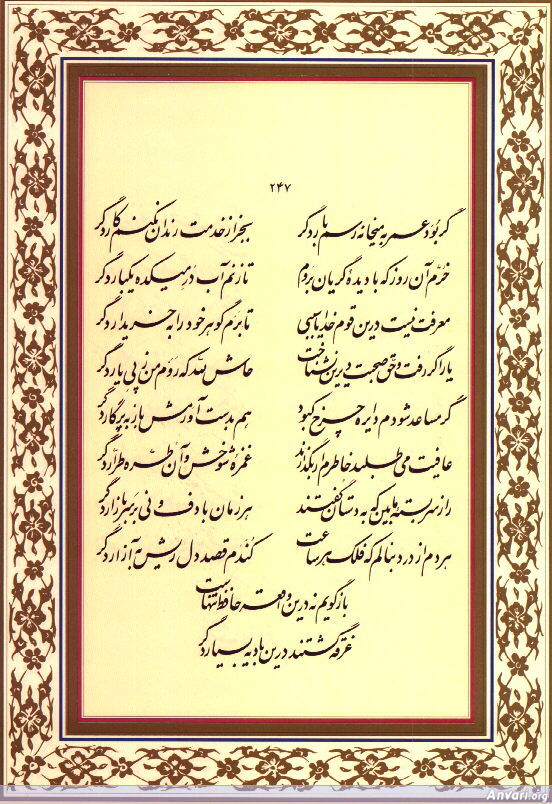 ۲۴۷
گر بود عمر به میخانه رسم بار دگر بجز از خدمت رندان نکنم کار دگر
خرّم آن روز که با دیدهٔ گریان بروم تا زنم آب در میکده یکبار دگر
معرفت نیست درین قوم خدایا سببی تا برم گوهر خود را به خریدار دگر
یار اگر رفت و حق صحبت دیرین نشناخت حاش لله که روم من ز پی یار دگر
گر مساعد شودم دایرهٔ چرخ کبود هم بدست آورمش باز به پرگار دگر
عافیت می‌طلبد خاطرم ار بگذارند غمزهٔ شوخش و آن طرهٔ طرار دگر
راز سربستهٔ ما بین که به دستان گفتند هر زمان با دف و نی بر سر بازار دگر
هر دم از درد بنالم که فلک هر ساعت کندم قصد دل ریش به آزار دگر
بازگویم نه درین واقعه حافظ تنهاست
غرقه گشتند درین بادیه بسیار دگر
Anvari.org